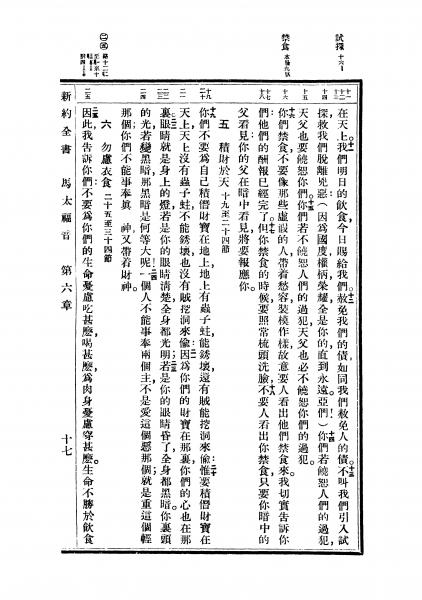 試探
禁食
十二
十三
在天上。我們明日的飲食、今日賜給我們。赦免我們的債、如同我們赦免人的債。不叫我們引入試
十四
探、救我們脫離兇惡。(因為國度權柄榮耀全是你的、直到永遠、亞們!)你們若饒恕人們的過犯、
十五
天父也要饒恕你們、你們若不饒恕人們的過犯、天父也必不饒恕你們的過犯。
十六
你們禁食、不要像那些虛假的人、帶着愁容、裝模作樣、故意要人看出他們禁食來、我切實告訴你
十七
十八
們、他們的酬報已經完了。但你禁食的時候、要照常梳頭洗臉、不要人看出你禁食、只要你暗中的
父看見、你的父在暗中看見、將要報應你。
五 積財於天 十九至二十四節
十九
你們不要為自己積儹財寶在地上、地上有蟲子蛀、能銹壞、還有賊能挖洞來偷、惟要積儹財寶在
二一
天上、天上沒有蟲子蛀、不能銹壞、也沒有賊挖洞來偷、因為你們的財寶在那裏、你們的心也在那
裏。眼睛就是身上的燈、若是你的眼睛清楚、全身都光明、若是你的眼睛昏了、全身都黑暗。你裏頭
二四
的光若變黑暗、那黑暗是何等大呢。一個人不能事奉兩個主、不是愛這個惡那個、就是重這個輕
那個、你們不能事奉眞 神又帶着財神。
六 勿慮衣食 二十五至三十四節
二五
因此我告訴你們、不要為你們的生命憂慮吃甚麼、喝甚麼、為肉身憂慮穿甚麼、生命不勝於飲食
新約全書 馬太福音 第六章 十七